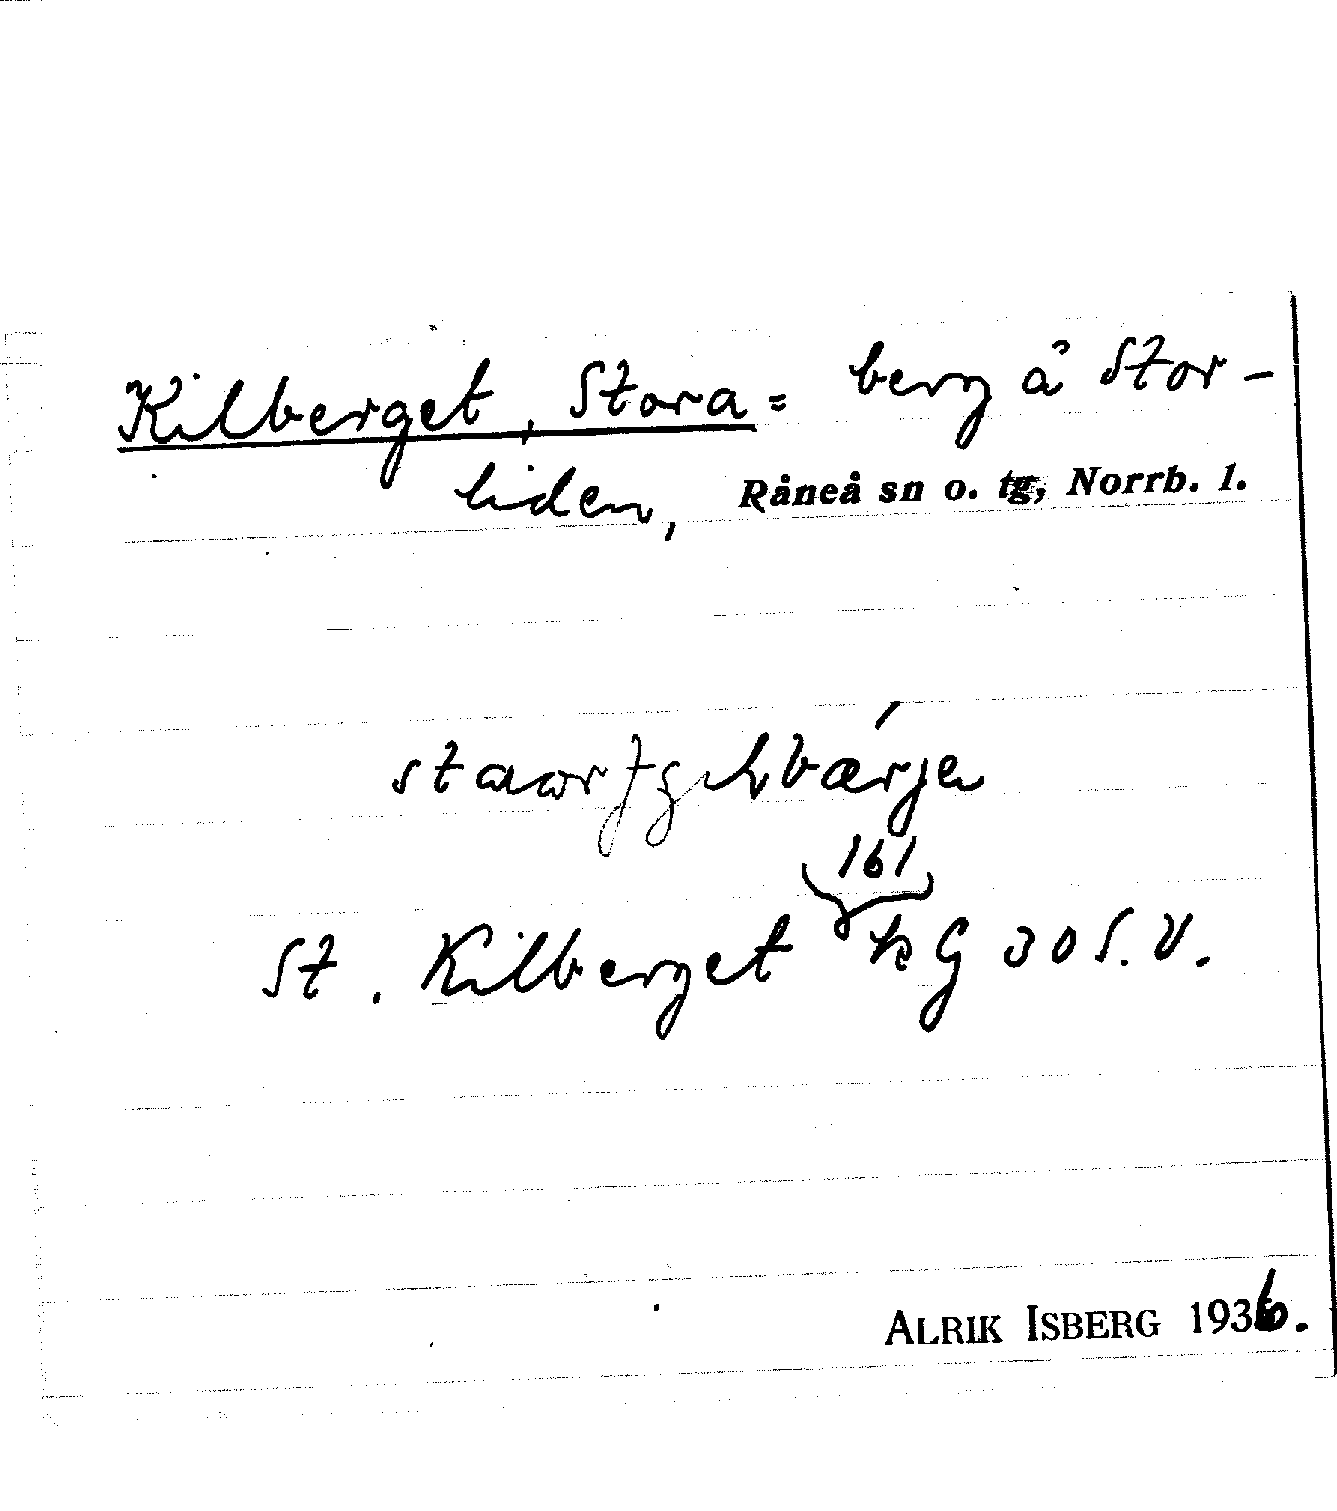 Kilberget, Stora = berg å Stor-
liden, Råneå sn o. tg, Norrb. l.
161
St. Kilberget kG 30 S.V.
ALRIK ISBERG 1936.